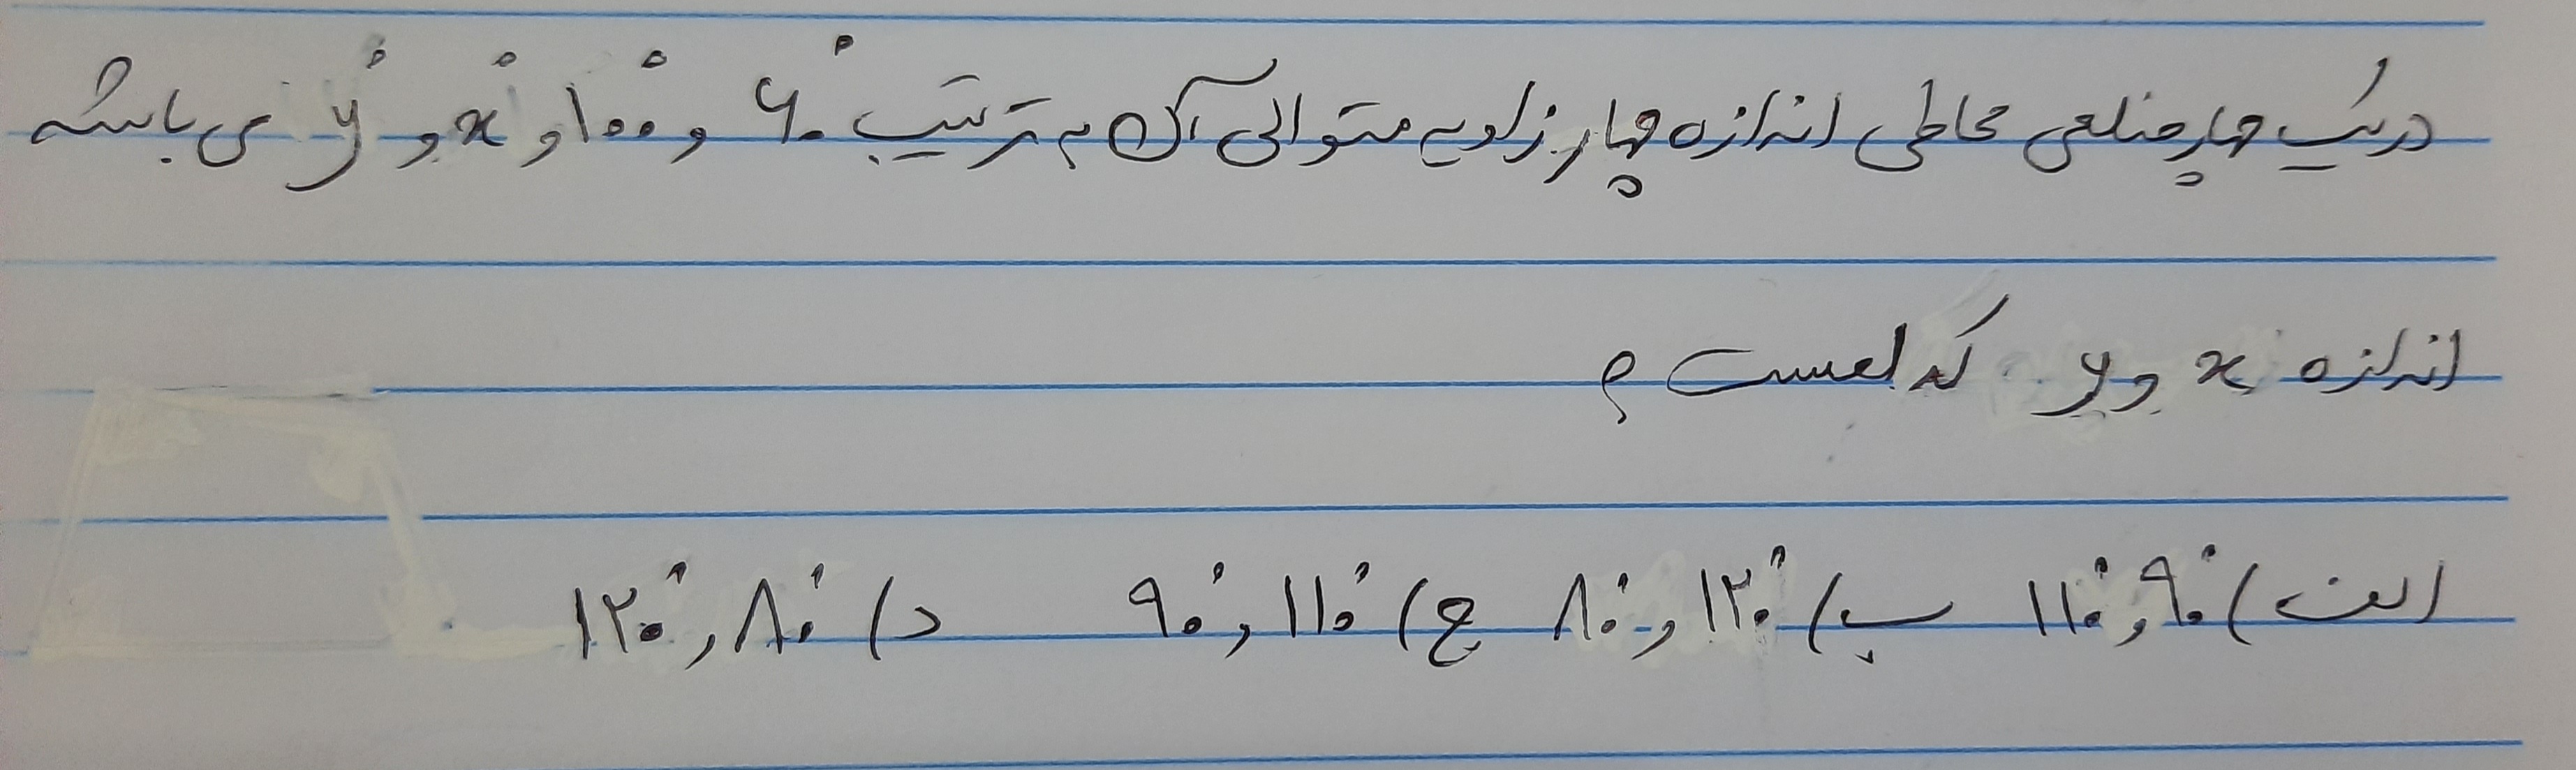 در یک چهارضلعی محاطی اندازه چهار زاویه متوالی آن به ترتیب ۶۰° و ۱۰۰° و x° و y° می باشد
اندازه x و y کدامست ؟
الف) ۹۰° و ۱۱۰° ب) ۱۲۰° و ۸۰° ج) ۱۱۰° و ۹۰° د) ۸۰° و ۱۲۰°